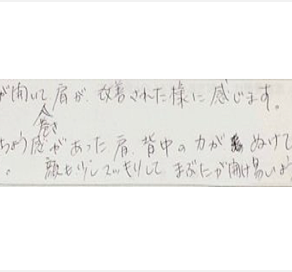 が開いて肩が、改善された様に感じます。
巻き
ちょう感があった肩、背中の力がぬけて
。 顔も少しスッキリして まぶたが開け易いよう